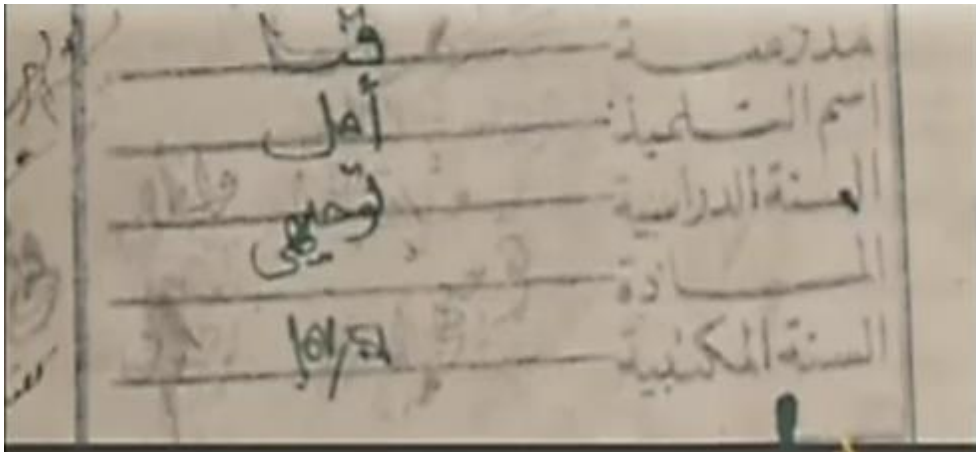 مدرسة قنا
اسم التلميذ: أمل
السنة الدراسية توجيهي
المادة
السنة المكتبية